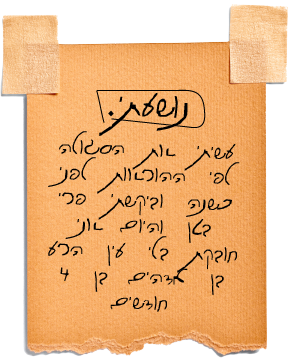 נושעתי.
עשיתי את הסגולה
לפי ההוראות לפני
כשנה וביקשתי פרי
בטן והיום אני
חובקת בלי עין הרע
בן מדהים בן 4
חודשים